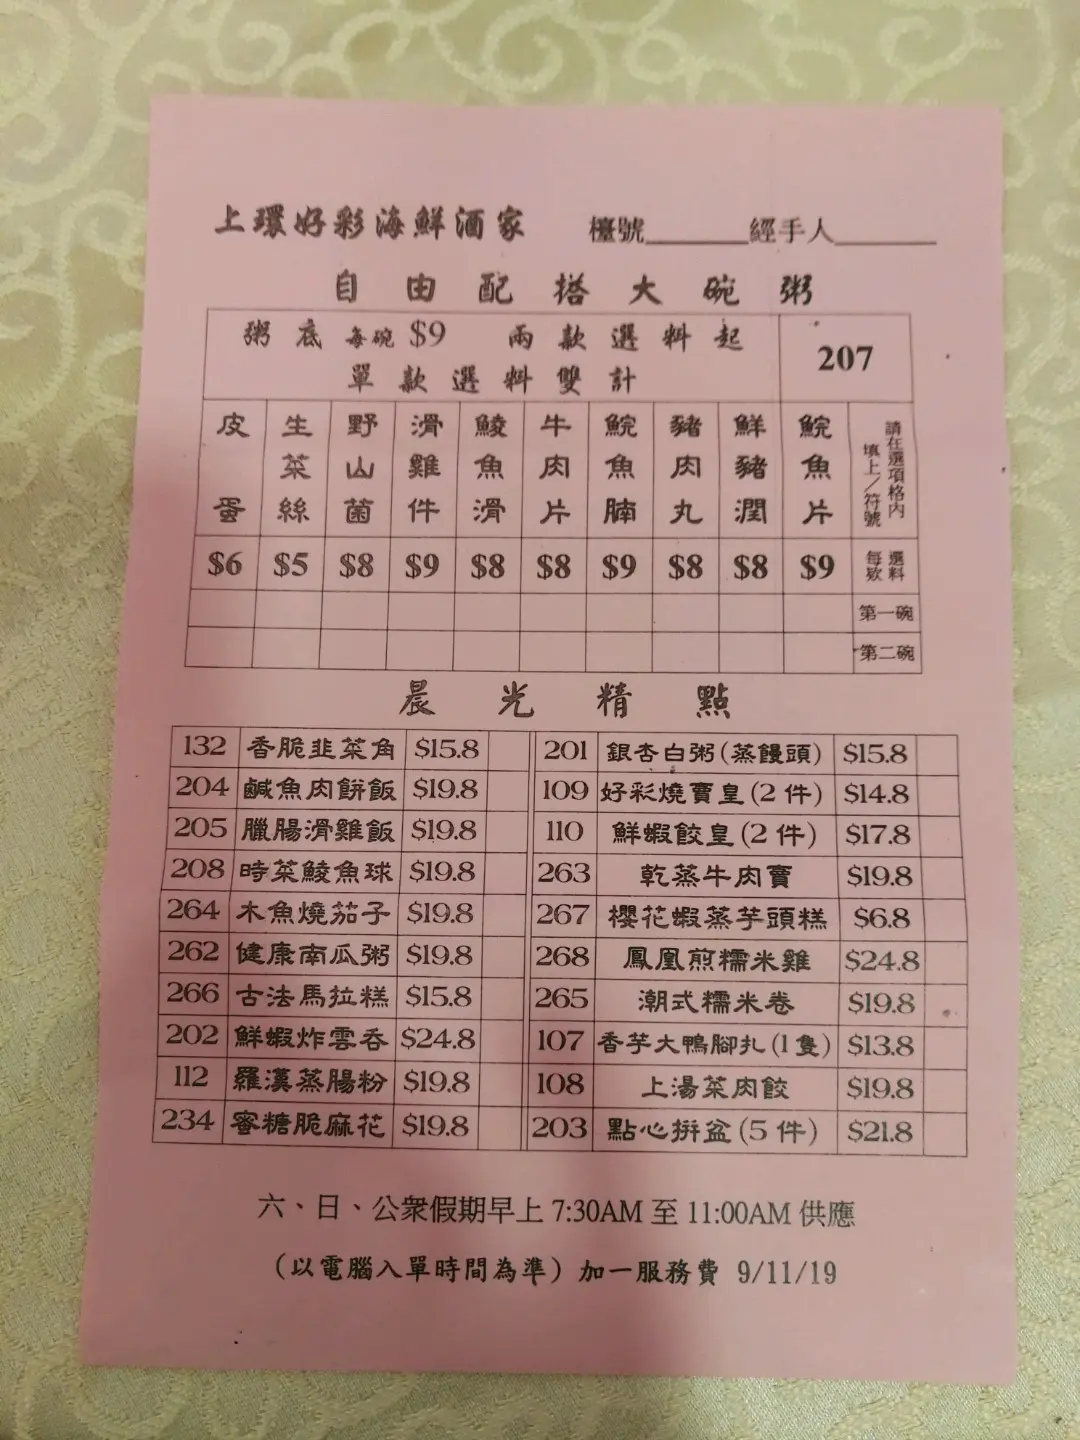 上環好彩海鮮酒家 檯號______經手人______
自由配搭大碗粥
粥底每碗$9 兩款選料起 207
單款選料雙計
皮蛋 生菜絲 野山菌 滑雞件 鯪魚滑 牛肉片 鯇魚腩 豬肉丸 鮮豬潤 鯇魚片 請在選項格內填上／符號
$6 $5 $8 $9 $8 $8 $9 $8 $8 $9 選料每欵
第一碗
第二碗
晨光精點
132 香脆韭菜角 $15.8 201 銀杏白粥(蒸饅頭) $15.8
204 鹹魚肉餅飯 $19.8 109 好彩燒賣皇(2 件) $14.8
205 臘腸滑雞飯 $19.8 110 鮮蝦餃皇(2 件) $17.8
208 時菜鯪魚球 $19.8 263 乾蒸牛肉賣 $19.8
264 木魚燒茄子 $19.8 267 櫻花蝦蒸芋頭糕 $6.8
262 健康南瓜粥 $19.8 268 鳳凰煎糯米雞 $24.8
266 古法馬拉糕 $15.8 265 潮式糯米卷 $19.8
202 鮮蝦炸雲吞 $24.8 107 香芋大鴨腳扎(1 隻) $13.8
112 羅漢蒸腸粉 $19.8 108 上湯菜肉餃 $19.8
234 蜜糖脆麻花 $19.8 203 點心拼盆(5 件) $21.8
六、日、公眾假期早上 7:30AM 至 11:00AM 供應
(以電腦入單時間為準) 加一服務費 9/11/19